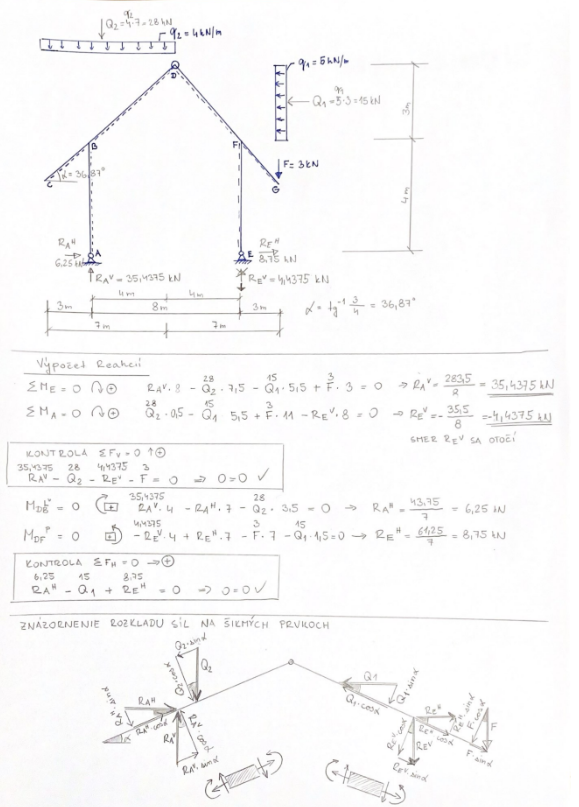 q2
Q2 = 4·7 = 28 kN
q2 = 4 kN/m
D
q1 = 5 kN/m
q1
Q1 = 5·3 = 15 kN
3m
B
F
F = 3 kN
α = 36,87°
C
G
4m
RA^H
6,25 kN
A
E
RE^H
8,75 kN
RA^V = 35,4375 kN
RE^V = 4,4375 kN
4m 4m
3m 8m 3m
7m 7m
α = tg⁻¹ 3/4 = 36,87°
Výpočet Reakcií
28 15 3
ΣME = 0 ⊕ RA^V · 8 - Q2 · 7,5 - Q1 · 5,5 + F · 3 = 0 → RA^V = 283,5/2 = 35,4375 kN
28 15 3
ΣMA = 0 ⊕ Q2 · 0,5 - Q1 5,5 + F · 11 - RE^V · 8 = 0 → RE^V = - 35,5/8 = -4,4375 kN
SMER RE^V SA OTOČÍ
KONTROLA ΣFV = 0 ↑⊕
35,4375 28 4,4375 3
RA^V - Q2 - RE^V - F = 0 ⇒ 0=0 ✓
35,4375 28
= 0 RA^V · 4 - RA^H · 7 - Q2 · 3,5 = 0 → RA^H = 43,75/7 = 6,25 kN
4,4375 3 15
MDF^P = 0 - RE^V · 4 + RE^H · 7 - F · 7 - Q1 · 1,5 = 0 → RE^H = 61,25/7 = 8,75 kN
KONTROLA ΣFH = 0 →⊕
6,25 15 8,75
RA^H - Q1 + RE^H = 0 ⇒ 0=0 ✓
ZNÁZORNENIE ROZKLADU SÍL NA ŠIKMÝCH PRVKOCH
Q2·sinα
Q2
Q2·cosα
RA^H
RA^H·sinα
RA^H·cosα
α
RA^V
RA^V·cosα
RA^V·sinα
Q1
Q1·sinα
Q1·cosα
RE^H
RE^H·sinα
RE^H·cosα
RE^V·cosα
RE^V
RE^V·sinα
F·cosα
F
F·sinα